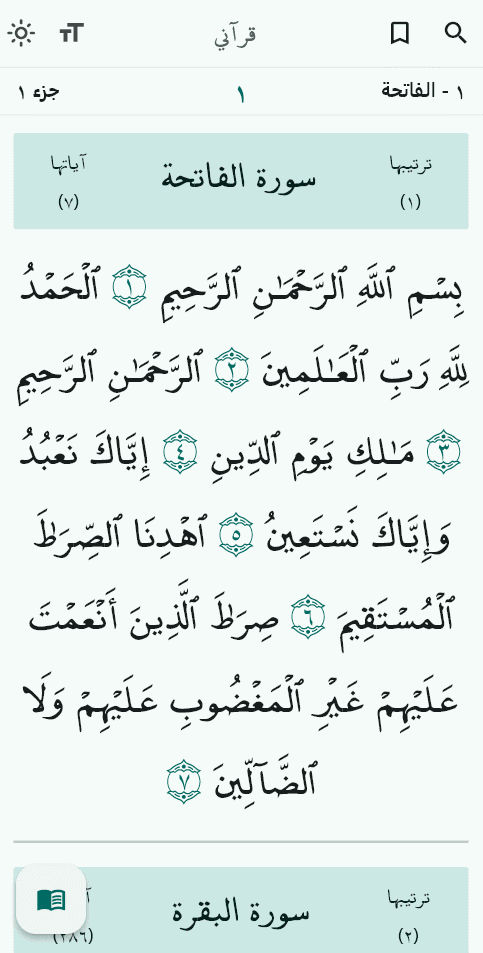 قرآني
١ - الفاتحة ١ جزء ١
ترتيبها سورة الفاتحة آياتها
(١) (٧)
بِسْمِ ٱللَّهِ ٱلرَّحْمَـٰنِ ٱلرَّحِيمِ ١ ٱلْحَمْدُ
لِلَّهِ رَبِّ ٱلْعَـٰلَمِينَ ٢ ٱلرَّحْمَـٰنِ ٱلرَّحِيمِ
٣ مَـٰلِكِ يَوْمِ ٱلدِّينِ ٤ إِيَّاكَ نَعْبُدُ
وَإِيَّاكَ نَسْتَعِينُ ٥ ٱهْدِنَا ٱلصِّرَٰطَ
ٱلْمُسْتَقِيمَ ٦ صِرَٰطَ ٱلَّذِينَ أَنْعَمْتَ
عَلَيْهِمْ غَيْرِ ٱلْمَغْضُوبِ عَلَيْهِمْ وَلَا
ٱلضَّآلِّينَ ٧
ترتيبها سورة البقرة
(٢) (٢٨٦)